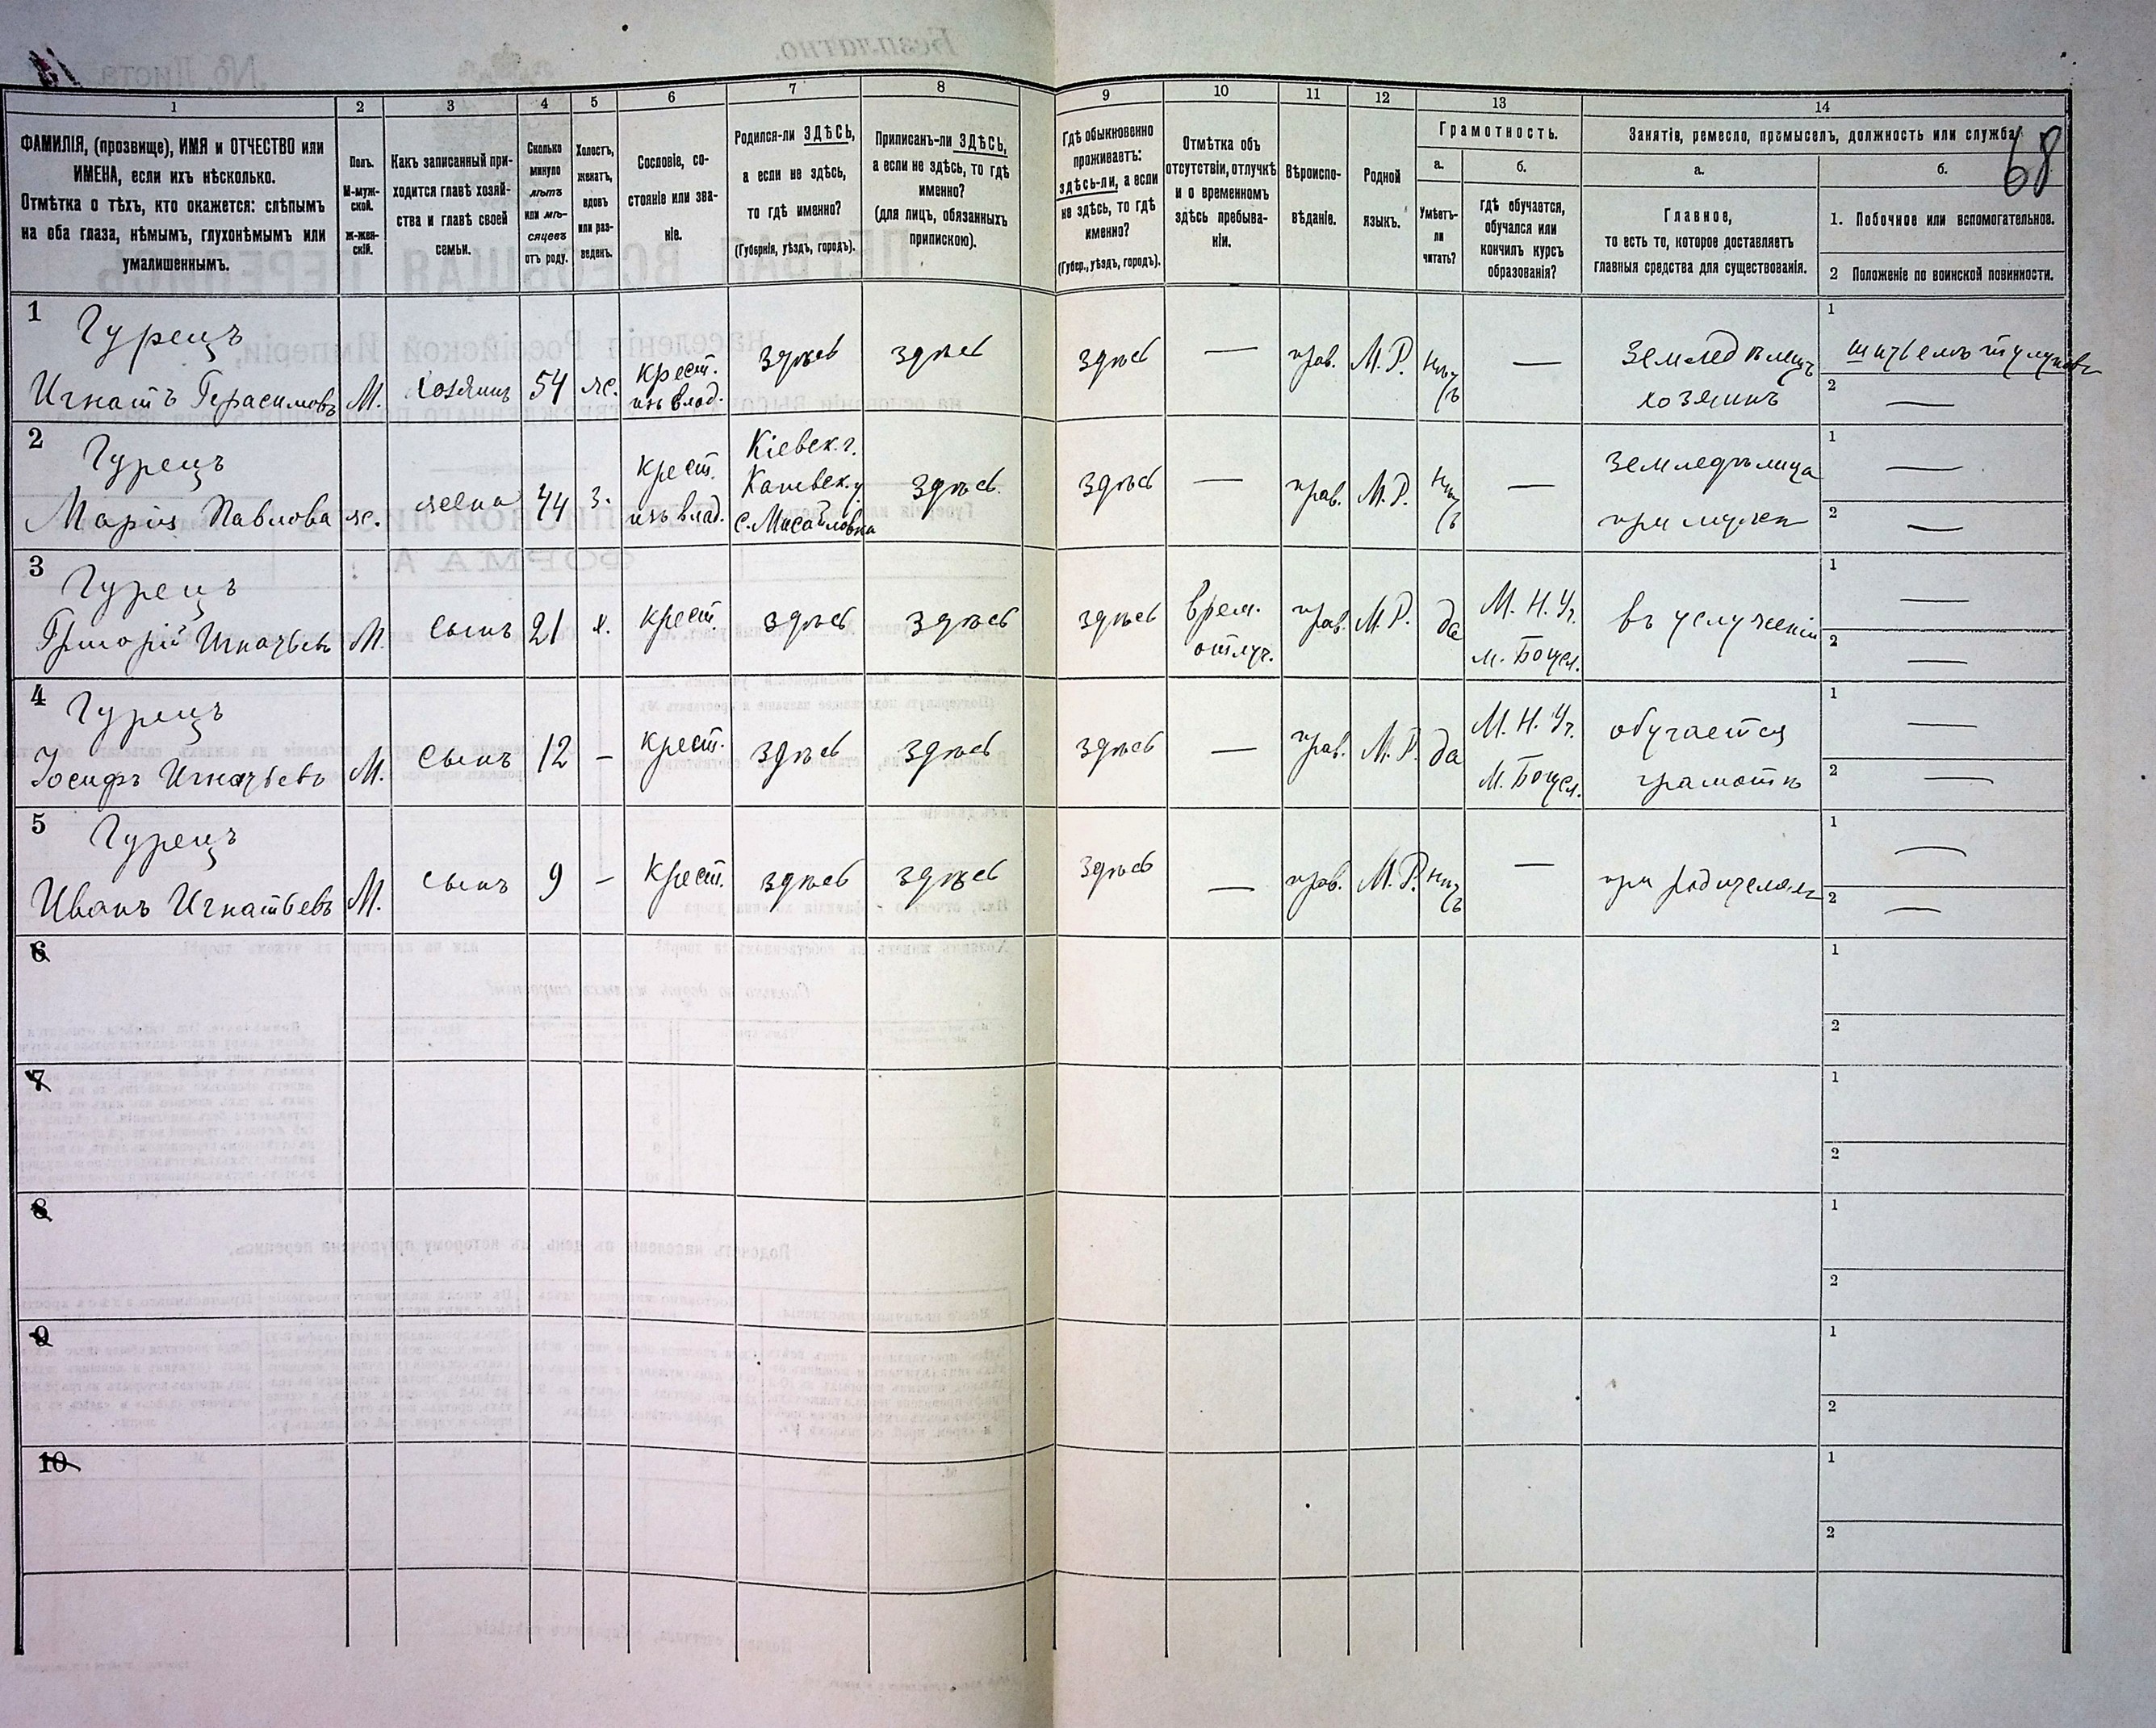 68
1 2 3 4 5 6 7 8 9 10 11 12 13 14
ФАМИЛІЯ, (прозвище), ИМЯ и ОТЧЕСТВО или
ИМЕНА, если ихъ нѣсколько.
Отмѣтка о тѣхъ, кто окажется: слѣпымъ
на оба глаза, нѣмымъ, глухонѣмымъ или
умалишеннымъ.
Полъ.
М-муж-
ской.
Ж-жен-
скій.
Какъ записанный при-
ходится главѣ хозяй-
ства и главѣ своей
семьи.
Сколько
минуло
лѣтъ
или мѣ-
сяцевъ
отъ роду.
Холостъ,
женатъ,
вдовъ
или раз-
веденъ.
Сословіе, со-
стояніе или зва-
ніе.
Родился-ли ЗДѢСЬ,
а если не здѣсь,
то гдѣ именно?
(Губернія, уѣздъ, городъ).
Приписанъ-ли ЗДѢСЬ,
а если не здѣсь, то гдѣ
именно?
(для лицъ, обязанныхъ
припискою).
Гдѣ обыкновенно
проживаетъ:
здѣсь-ли, а если
не здѣсь, то гдѣ
именно?
(Губер., уѣздъ, городъ).
Отмѣтка объ
отсутствіи, отлучкѣ
и о временномъ
здѣсь пребыва-
ніи.
Вѣроиспо-
вѣданіе.
Родной
языкъ.
Грамотность.
а.
Умѣетъ-
ли
читать?
б.
гдѣ обучается,
обучался или
кончилъ курсъ
образованія?
Занятіе, ремесло, промыселъ, должность или служба
а.
Главное,
то есть то, которое доставляетъ
главныя средства для существованія.
б.
1. Побочное или вспомогательное.
2 Положеніе по воинской повинности.
1
Гурецъ
Игнатъ Герасимовъ
М.
хозяинъ
54
ж.
крест.
изъ влад.
здѣсь
здѣсь
здѣсь
—
прав.
М.Р.
нѣтъ
—
земледѣлецъ
хозяинъ
1
2 —
2
Гурецъ
Марія Павлова
ж.
жена
44
з.
крест.
изъ влад.
Кіевск. г.
Каневск. у
с. Масайловка
здѣсь.
здѣсь
—
прав.
М.Р.
нѣтъ
—
земледѣлица
при мужѣ
1 —
2 —
3
Гурецъ
Григорій Игнатьевъ
М.
сынъ
21
х.
крест.
здѣсь
здѣсь
здѣсь
врем.
отлуч.
прав.
М.Р.
да
М. Н. Уч.
м. Богусл.
въ услуженіи
1 —
2 —
4
Гурецъ
Іосифъ Игнатьевъ
М.
сынъ
12
—
крест.
здѣсь
здѣсь
здѣсь
—
прав.
М.Р.
да
М. Н. Уч.
М. Богусл.
обучается
грамотѣ
1 —
2 —
5
Гурецъ
Иванъ Игнатьевъ
М.
сынъ
9
—
крест.
здѣсь
здѣсь
здѣсь
—
прав.
М.Р.
нѣтъ
—
при родителяхъ
1 —
2 —
6
1
2
7
1
2
8
1
2
9
1
2
10
1
2